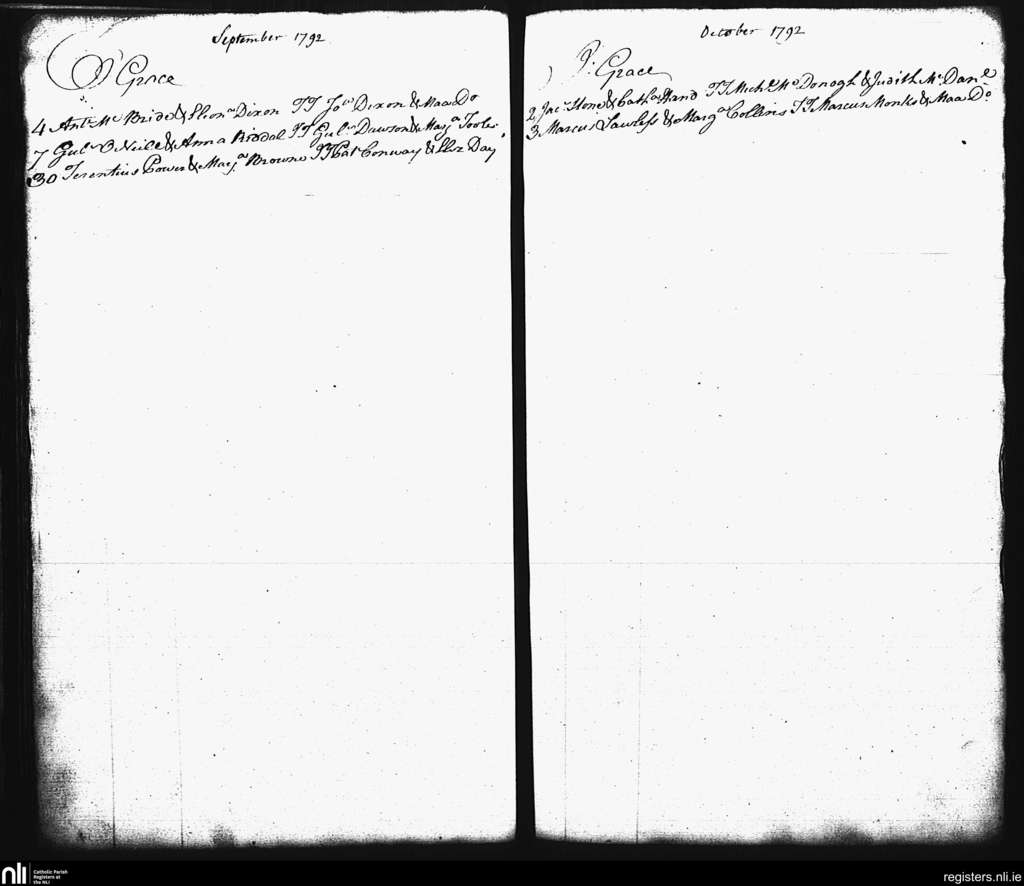 September 1792
P Grace
4 Ant. Mc Bride & Elon.a Dixon TT Jo.s Dixon & Maa Do
7 Gul.s O Neill & Anna Riddal TT Gul.s Dawson & Marg.a Toole
30 Terentius Power & Marg.a Browne TT Pat Conway & Eliz Day
October 1792
P. Grace
2 Jac. Stone & Cath.a Hand TT Mich.l Mc Donogh & Judith Mc Dan.l
3 Marcus Lawless & Marg.a Collins TT Marcus Monks & Maa Do.
nli
Catholic Parish
Registers at
the NLI
registers.nli.ie